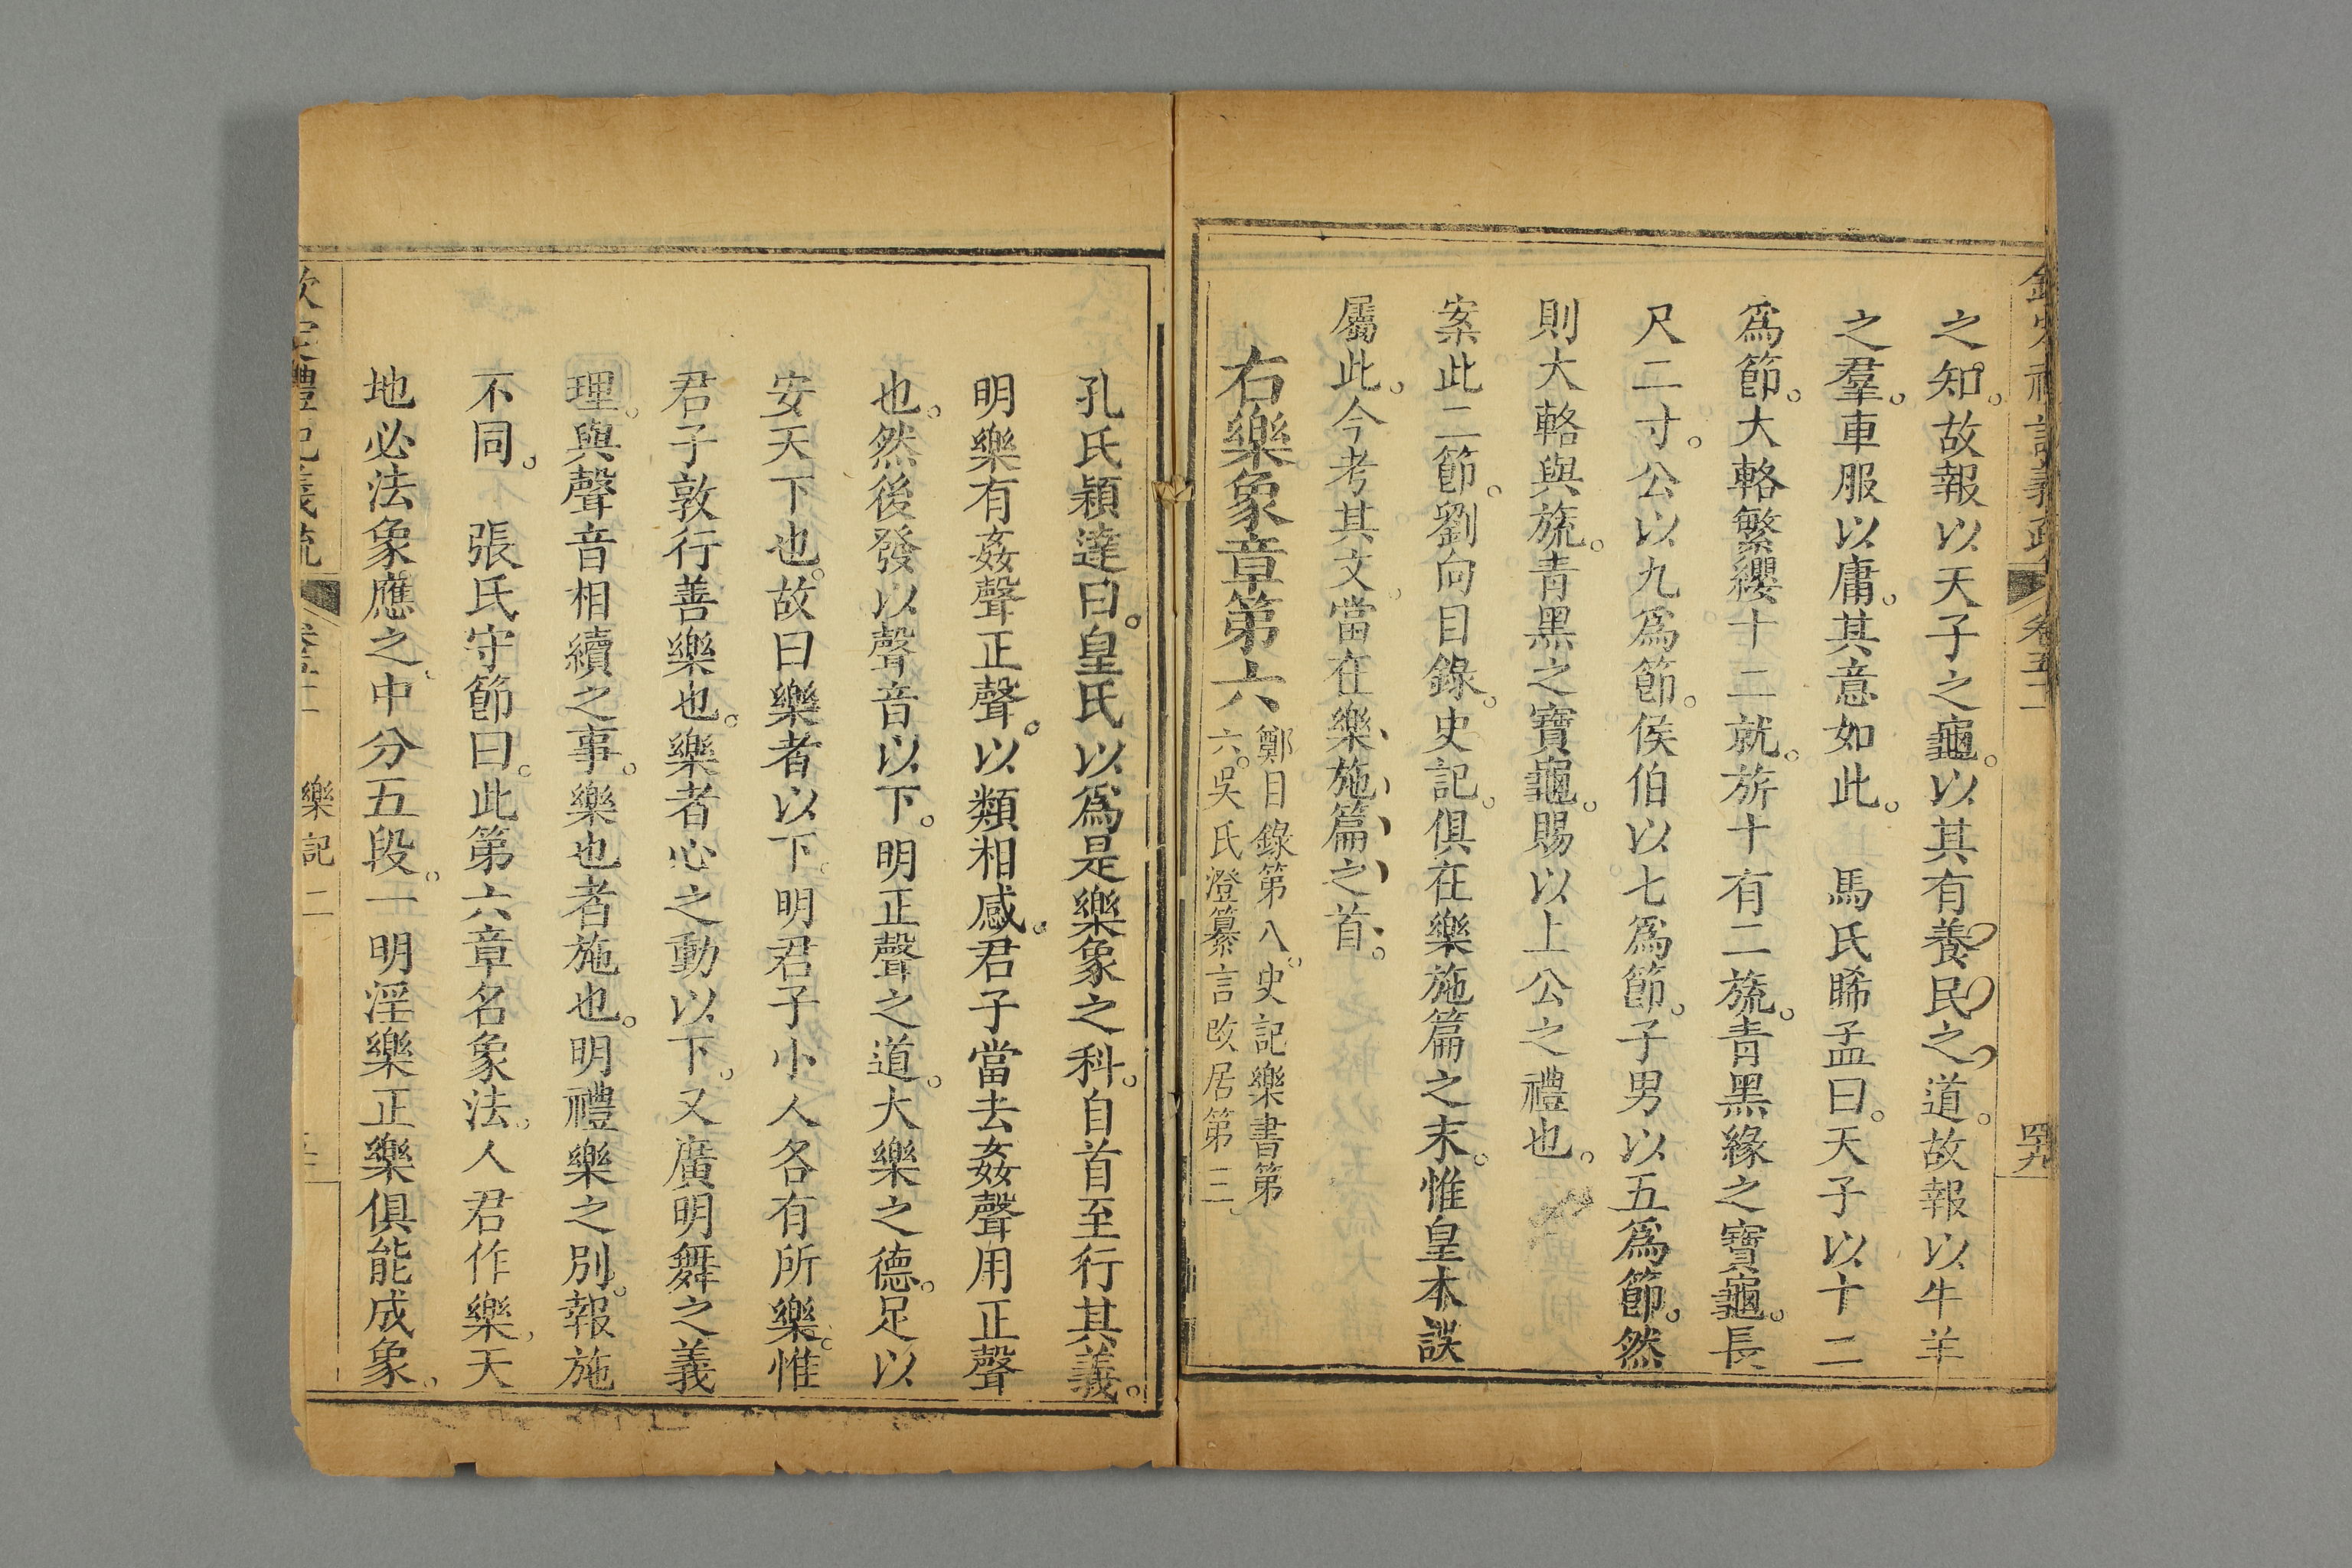 之知。故報以天子之龜。以其有養民之道。故報以牛羊
之羣。車服以庸。其意如此。　馬氏睎孟曰。天子以十二
爲節。大輅繁纓十二就。旂十有二旒。靑黑緣之寶龜。長
尺二寸。公以九爲節。侯伯以七爲節。子男以五爲節。然
則大輅與旒。靑黑之寶龜。賜以上公之禮也。
案此二節。劉向目錄。史記。俱在樂施篇之末。惟皇本誤
屬此。今考其文。當在樂施篇之首。
右樂象章第六
鄭目錄第八。史記樂書第
六。吳氏澄纂言改居第三。
孔氏穎達曰。皇氏以爲是樂象之科。自首至行其義。
明樂有姦聲正聲。以類相感。君子當去姦聲用正聲
也。然後發以聲音以下。明正聲之道。大樂之德。足以
安天下也。故曰樂者以下。明君子小人各有所樂。惟
君子敦行善樂也。樂者心之動以下。又廣明舞之義
理。與聲音相續之事。樂也者施也。明禮樂之別。報施
不同。　張氏守節曰。此第六章名象法。人君作樂。天
地必法象應之。中分五段。一明淫樂正樂俱能成象。
欽定禮記義疏
樂記二